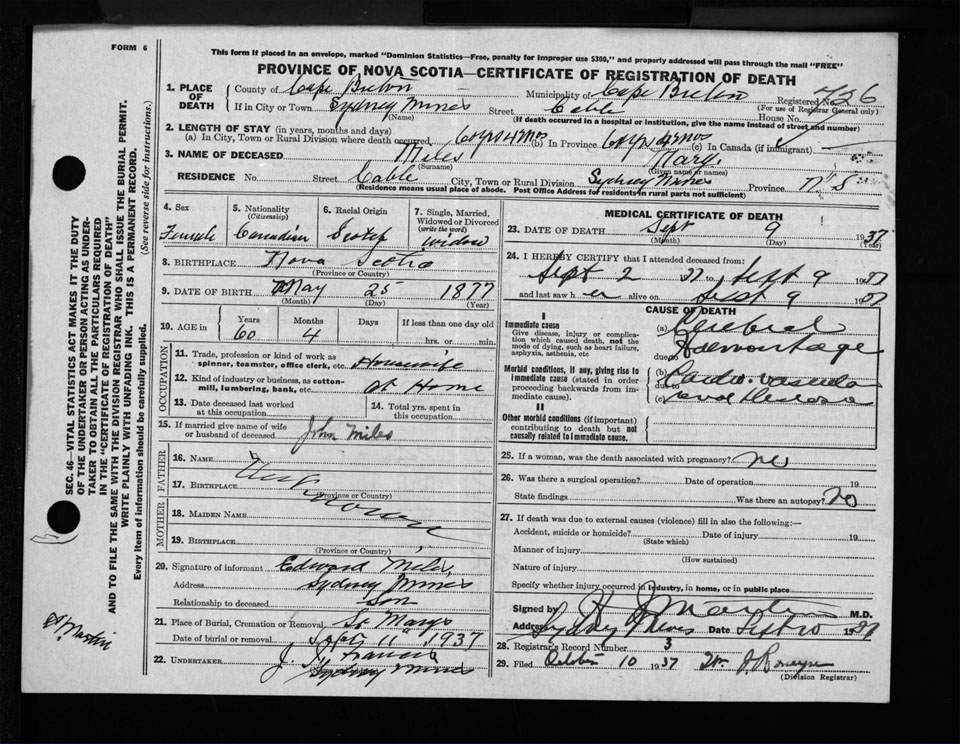 FORM 6
This form if placed in an envelope, marked "Dominion Statistics—Free, penalty for improper use $300," and properly addressed will pass through the mail "FREE"
PROVINCE OF NOVA SCOTIA—CERTIFICATE OF REGISTRATION OF DEATH
1. PLACE OF DEATH
County of Cape Breton Municipality of Cape Breton Registered No. 726
(For use of Registrar General only)
If in City or Town Sydney Mines Street Cable House No.
(Name) (If death occurred in a hospital or institution, give the name instead of street and number)
2. LENGTH OF STAY (in years, months and days)
(a) In City, Town or Rural Division where death occurred 60 yrs 4 mos (b) In Province 60 yrs 4 mos (c) In Canada (if immigrant)
3. NAME OF DECEASED Miles Mary
(Surname) (Given name or names)
RESIDENCE No. Street Cable City, Town or Rural Division Sydney Mines Province N.S.
(Residence means usual place of abode. Post Office Address for residents in rural parts not sufficient)
4. Sex
Female
5. Nationality (Citizenship)
Canadian
6. Racial Origin
Scotch
7. Single, Married, Widowed or Divorced (write the word)
Widow
8. BIRTHPLACE Nova Scotia
(Province or Country)
9. DATE OF BIRTH May 25 1877
(Month) (Day) (Year)
10. AGE in Years Months Days If less than one day old
60 4 hrs. or min.
OCCUPATION
11. Trade, profession or kind of work as spinner, teamster, office clerk, etc. Housewife
12. Kind of industry or business, as cotton-mill, lumbering, bank, etc. At Home
13. Date deceased last worked at this occupation
14. Total yrs. spent in this occupation
15. If married give name of wife or husband of deceased John Miles
FATHER
16. NAME
17. BIRTHPLACE
(Province or Country)
MOTHER
18. MAIDEN NAME
19. BIRTHPLACE
(Province or Country)
20. Signature of informant Edward Miles
Address Sydney Mines
Relationship to deceased Son
21. Place of Burial, Cremation or Removal St. Marys
Date of burial or removal Sept 11 1937
22. UNDERTAKER J J Francis
Sydney Mines
MEDICAL CERTIFICATE OF DEATH
23. DATE OF DEATH Sept 9 1937
(Month) (Day) (Year)
24. I HEREBY CERTIFY that I attended deceased from:
Sept 2 1937 to Sept 9 1937
and last saw her alive on Sept 9 1937
CAUSE OF DEATH
I
Immediate cause
Give disease, injury or complication which caused death, not the mode of dying, such as heart failure, asphyxia, asthenia, etc
(a) Cerebral
Haemorrhage
due to
Morbid conditions, if any, giving rise to immediate cause (stated in order proceeding backwards from immediate cause).
(b) Cardio-vascular
due to
(c) renal disease
II
Other morbid conditions (if important) contributing to death but not causally related to immediate cause.
25. If a woman, was the death associated with pregnancy? no
26. Was there a surgical operation? Date of operation 19
State findings Was there an autopsy? No
27. If death was due to external causes (violence) fill in also the following:—
Accident, suicide or homicide? Date of injury 19
(State which)
Manner of injury
(How sustained)
Nature of injury
Specify whether injury occurred in industry, in home, or in public place
Signed by Martin M.D.
Address Sydney Mines Date Sept 10 1937
28. Registrar's Record Number 3
29. Filed October 10 1937
(Division Registrar)
SEC. 46—VITAL STATISTICS ACT MAKES IT THE DUTY
OF THE UNDERTAKER OR PERSON ACTING AS UNDER-
TAKER TO OBTAIN ALL THE PARTICULARS REQUIRED
IN THE "CERTIFICATE OF REGISTRATION OF DEATH"
AND TO FILE THE SAME WITH THE DIVISION REGISTRAR WHO SHALL ISSUE THE BURIAL PERMIT.
WRITE PLAINLY WITH UNFADING INK. THIS IS A PERMANENT RECORD.
Every item of information should be carefully supplied. (See reverse side for instructions.)
Martin